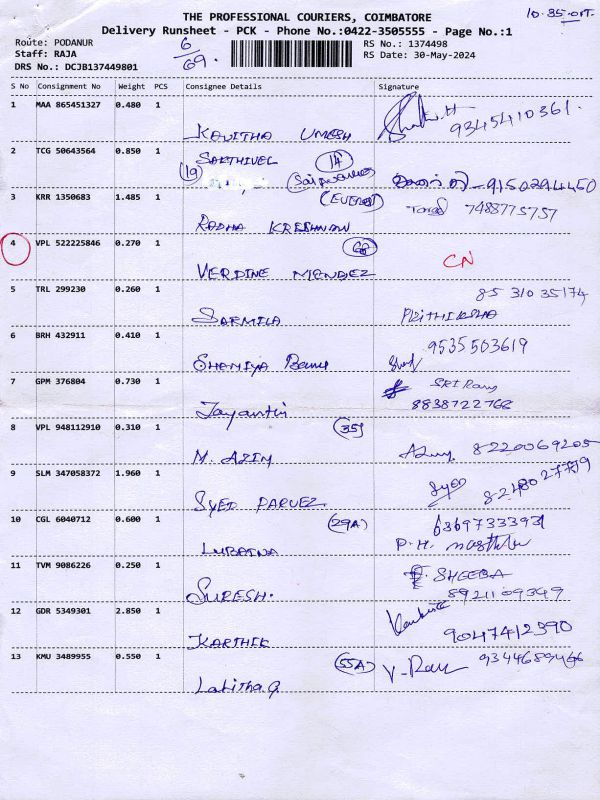 THE PROFESSIONAL COURIERS, COIMBATORE
10.35
Delivery Runsheet - PCK - Phone No.:0422-3505555 - Page No.:1
Route: PODANUR
6/69.
RS No.: 1374498
Staff: RAJA
RS Date: 30-May-2024
DRS No.: DCJB137449801
S No Consignment No Weight PCS Consignee Details Signature
1 MAA 865451327 0.480 1 KAVITHA UMESH 9345410361.
2 TCG 50643564 0.850 1 SAKTHIVEL 14
19 9150294450
3 KRR 1350683 1.485 1 RADHA KRESHNAN 7488775757
4 VPL 522225846 0.270 1 VERDINE MENDEZ CN
5 TRL 299230 0.260 1 SARMILA PRITHIKSHA 85 310 35174
6 BRH 432911 0.410 1 SHANIYA Banu 9535503619
7 GPM 376804 0.730 1 Jayanthi SRI Rang 8838722768
8 VPL 948112910 0.310 1 35 M. AZIM 8220069205
9 SLM 347058372 1.960 1 SYED PARVEZ Syed 8248027779
10 CGL 6040712 0.600 1 29A LUBAINA 6369733393
P.H.
11 TVM 9086226 0.250 1 SURESH. SHEEBA 8921109349
12 GDR 5349301 2.850 1 KARTHIK 9047412390
13 KMU 3489955 0.550 1 55A Lalitha G V-Ram